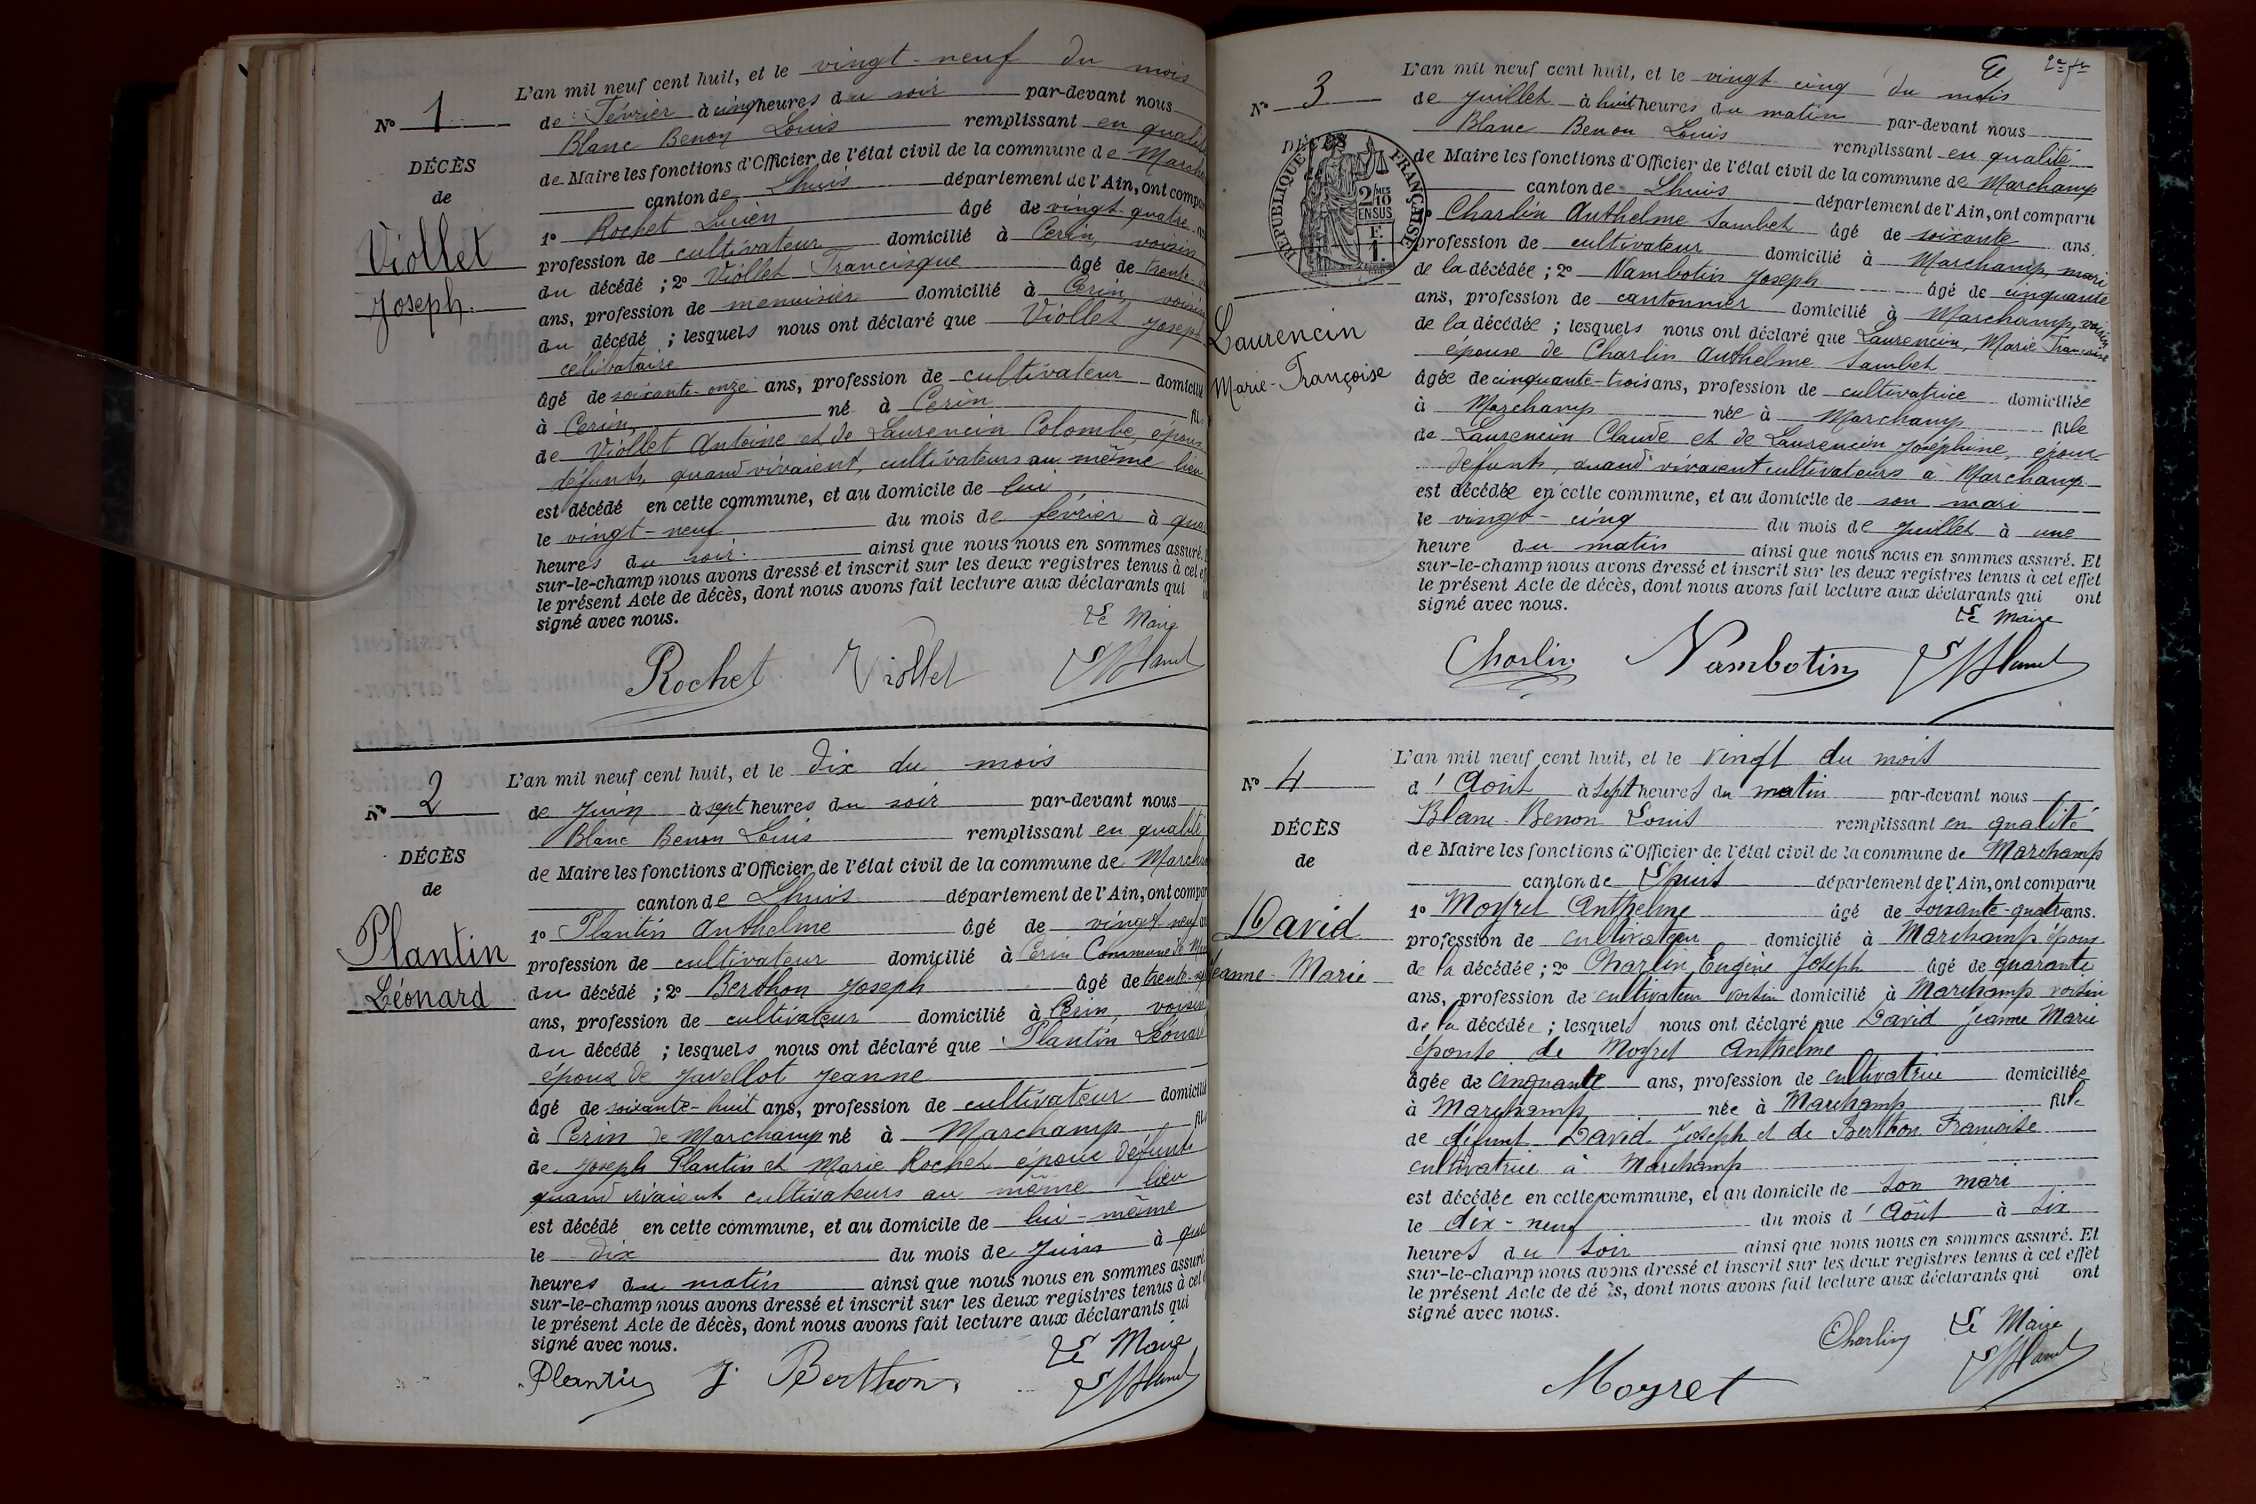 L'an mil neuf cent huit, et le vingt-neuf du mois
N° 1
de Février à cinq heures du soir par-devant nous
Blanc Benon Louis remplissant en qualité
DÉCÈS
de Maire les fonctions d'Officier de l'état civil de la commune de
de
canton de Lhuis département de l'Ain, ont
1° Rochet Lucien âgé de vingt quatre
Viollet
profession de cultivateur domicilié à Cerin, voisin
du décédé ; 2° Viollet Francisque âgé de trente
Joseph.
ans, profession de menuisier domicilié à Cerin, voisin
du décédé ; lesquels nous ont déclaré que Viollet Joseph
célibataire
âgé de soixante-onze ans, profession de cultivateur domicilié
à Cerin, né à Cerin
de Viollet Antoine et de Laurencin Colombe, époux
défunts, quand vivaient, cultivateurs au même lieu
est décédé en cette commune, et au domicile de lui
le vingt-neuf du mois de février à
heures du soir. ainsi que nous nous en sommes assuré.
sur-le-champ nous avons dressé et inscrit sur les deux registres tenus à cet
le présent Acte de décès, dont nous avons fait lecture aux déclarants qui
signé avec nous.
Le Maire
Rochet Viollet
L'an mil neuf cent huit, et le dix du mois
N° 2
de Juin à sept heures du soir par-devant nous
Blanc Benon Louis remplissant en qualité
DÉCÈS
de Maire les fonctions d'Officier de l'état civil de la commune de
de
canton de Lhuis département de l'Ain, ont
1° Plantin Anthelme âgé de vingt neuf
Plantin
profession de cultivateur domicilié à Cerin Commune de
du décédé ; 2° Berthon Joseph âgé de
Léonard
ans, profession de cultivateur domicilié à Cerin, voisin
du décédé ; lesquels nous ont déclaré que Plantin Léonard
époux de Javellot Jeanne
âgé de soixante-huit ans, profession de cultivateur domicilié
à Cerin de Marchamp né à Marchamp
de Joseph Plantin et Marie Rochet époux défunts
quand vivaient cultivateurs au même lieu
est décédé en cette commune, et au domicile de lui-même
le dix du mois de Juin à
heures du matin ainsi que nous nous en sommes assuré.
sur-le-champ nous avons dressé et inscrit sur les deux registres tenus à cet
le présent Acte de décès, dont nous avons fait lecture aux déclarants qui
signé avec nous.
Le Maire
Plantin J. Berthon
L'an mil neuf cent huit, et le vingt cinq du mois
N° 3
de Juillet à huit heures du matin par-devant nous
Blanc Benon Louis remplissant en qualité
DÉCÈS
RÉPUBLIQUE FRANÇAISE
2/10 MES EN SUS
F. 1.
de Maire les fonctions d'Officier de l'état civil de la commune de Marchamp
canton de Lhuis département de l'Ain, ont comparu
Charlin Anthelme Sambet âgé de soixante ans.
profession de cultivateur domicilié à Marchamp, mari
de la décédée ; 2° Nambotin Joseph âgé de cinquante
ans, profession de cantonnier domicilié à Marchamp, voisin
Laurencin
de la décédée ; lesquels nous ont déclaré que Laurencin, Marie Françoise
épouse de Charlin Anthelme Sambet
Marie-Françoise
âgée de cinquante-trois ans, profession de cultivatrice domiciliée
à Marchamp née à Marchamp fille
de Laurencin Claude et de Laurencin Joséphine, époux
défunts, quand vivaient cultivateurs à Marchamp
est décédée en cette commune, et au domicile de son mari
le vingt-cinq du mois de Juillet à une
heure du matin ainsi que nous nous en sommes assuré. Et
sur-le-champ nous avons dressé et inscrit sur les deux registres tenus à cet effet
le présent Acte de décès, dont nous avons fait lecture aux déclarants qui ont
signé avec nous.
Le Maire
Charlin Nambotin
L'an mil neuf cent huit, et le vingt du mois
N° 4
d'Août à sept heures du matin par-devant nous
Blanc Benon Louis remplissant en qualité
DÉCÈS
de Maire les fonctions d'Officier de l'état civil de la commune de Marchamp
de
canton de Lhuis département de l'Ain, ont comparu
1° Moyret Anthelme âgé de soixante-quatre ans.
David
profession de cultivateur domicilié à Marchamp époux
de la décédée ; 2° Charlin Eugène Joseph âgé de quarante
Jeanne-Marie
ans, profession de cultivateur voisin domicilié à Marchamp voisin
de la décédée ; lesquels nous ont déclaré que David Jeanne Marie
épouse de Moyret Anthelme
âgée de cinquante ans, profession de cultivatrice domiciliée
à Marchamp née à Marchamp fille
de défunt David Joseph et de Berthon Françoise
cultivatrice à Marchamp
est décédée en cette commune, et au domicile de son mari
le dix-neuf du mois d'Août à six
heures du soir ainsi que nous nous en sommes assuré. Et
sur-le-champ nous avons dressé et inscrit sur les deux registres tenus à cet effet
le présent Acte de décès, dont nous avons fait lecture aux déclarants qui ont
signé avec nous.
Charlin Le Maire
Moyret